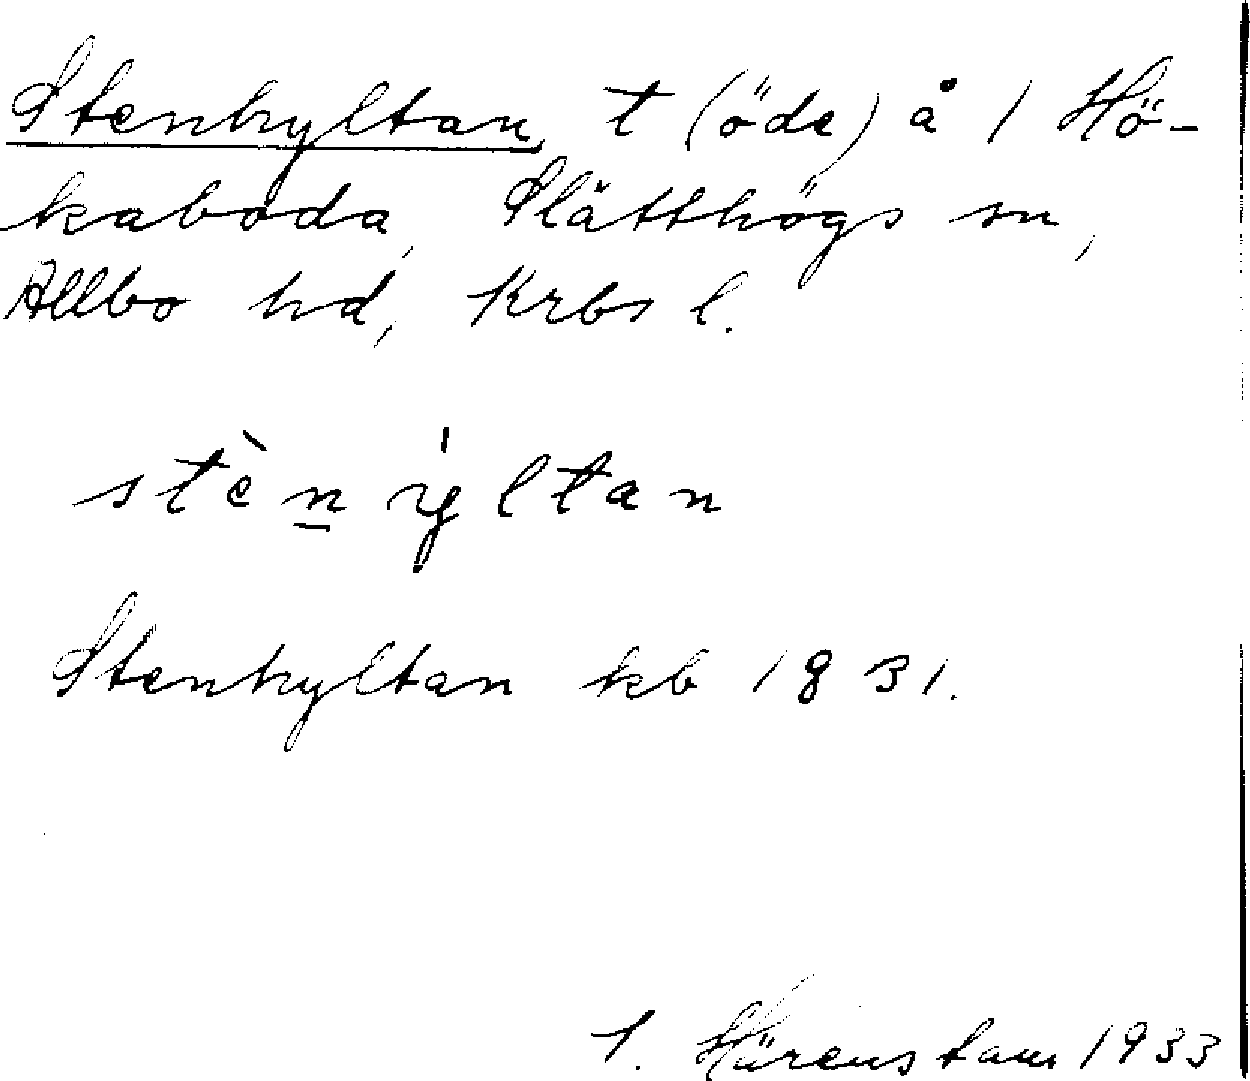 Stenhyltan, t (öde) å 1 Hö-
kaboda, Slätthögs sn,
Allbo hd, Krbs l.
stèn ýltan
Stenhyltan kb 1831.
1. Härenstam 1933